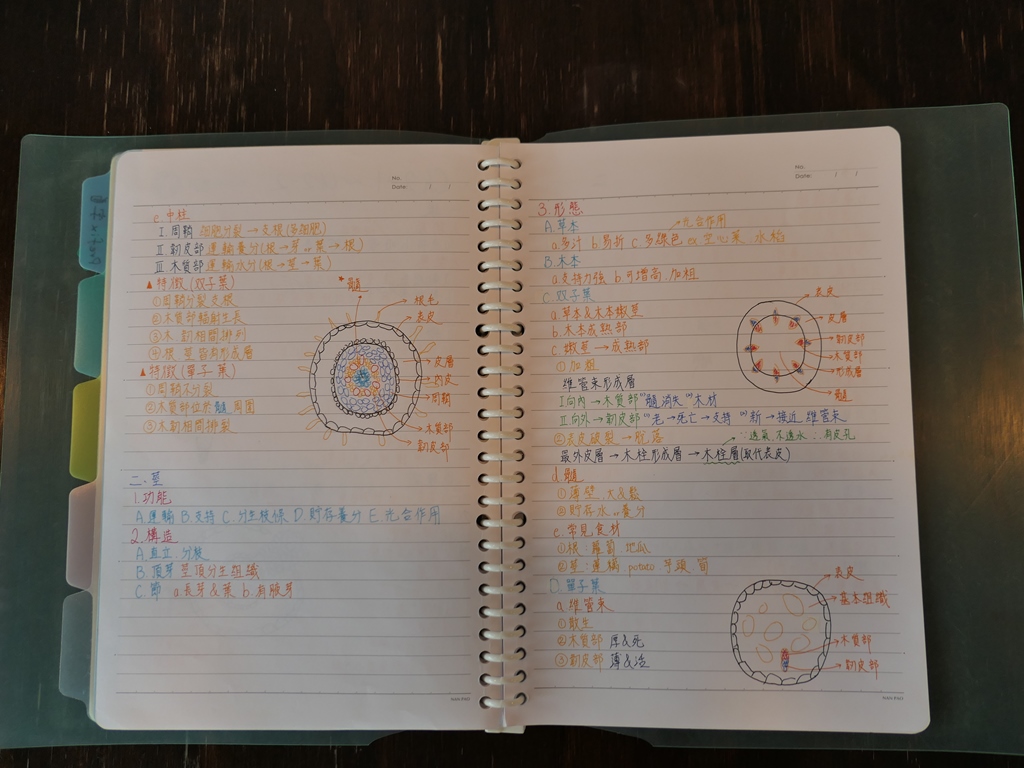 No.
Date: / /
c. 中柱
I 周鞘 細胞分裂 → 支根(多細肥)
II 韌皮部 運輸養分(根→芽 or 葉→根)
III 木質部 運輸水分(根→莖→葉)
▲特徵(双子葉)
①周鞘分裂支根
②木質部輻射生長
③木.韌相間排列
④根.莖皆有形成層
▲特徵(單子葉)
①周鞘不分裂
②木質部位於髓周圍
③木韌相間排裂
*髓
根毛
表皮
皮層
內皮
周鞘
木質部
韌皮部
二.莖
1.功能
A.運輸 B.支持 C.分生枝條 D.貯存養分 E.光合作用
2.構造
A.直立.分裝
B.頂芽 莖頂分生組織
C.節 a.長芽&葉 b.有腋芽
NAN-PAO
No.
Date: / /
3.形態
A.草本
光合作用
a.多汁 b.易折 c.多綠色 ex 空心菜.水稻
B.木本
a.支持力強 b.可增高.加粗
C.双子葉
a.草本&木本嫩莖
b.木本成熟部
c.嫩莖→成熟部
①加粗
維管束形成層
I 向內→木質部 髓消失 木材
II 向外→韌皮部 老→死亡→支持 新→接近維管束
②表皮破裂→脫落
∵透氣.不透水 ∴有皮孔
最外皮層→木栓形成層→木栓層(取代表皮)
d.髓
①薄壁.大&鬆
②貯存水 or 養分
e.常見食材
①根:蘿蔔 地瓜
②莖:蓮藕 potato 芋頭 筍
D.單子葉
a.維管束
①散生
②木質部 厚&死
③韌皮部 薄&活
表皮
皮層
韌皮部
木質部
形成層
髓
表皮
基本組織
木質部
韌皮部
NAN-PAO